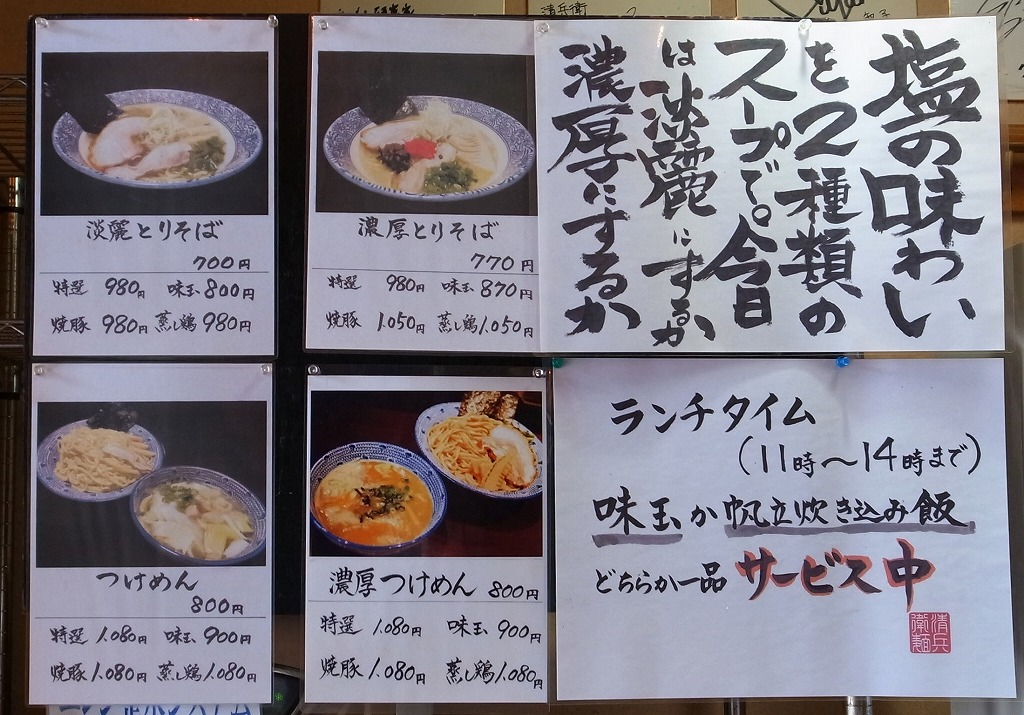 清兵衛
淡麗とりそば
700円
特選 980円 味玉 800円
焼豚 980円 蒸し鶏 980円
濃厚とりそば
770円
特選 980円 味玉 870円
焼豚 1.050円 蒸し鶏 1.050円
塩の味わい
を2種類の
スープで。今日
は淡麗にするか
濃厚にするか
つけめん
800円
特選 1.080円 味玉 900円
焼豚 1.080円 蒸し鶏 1.080円
濃厚つけめん 800円
特選 1.080円 味玉 900円
焼豚 1.080円 蒸し鶏 1.080円
ランチタイム
(11時〜14時まで)
味玉か帆立炊き込み飯
どちらか一品 サービス中
清兵
衛麺